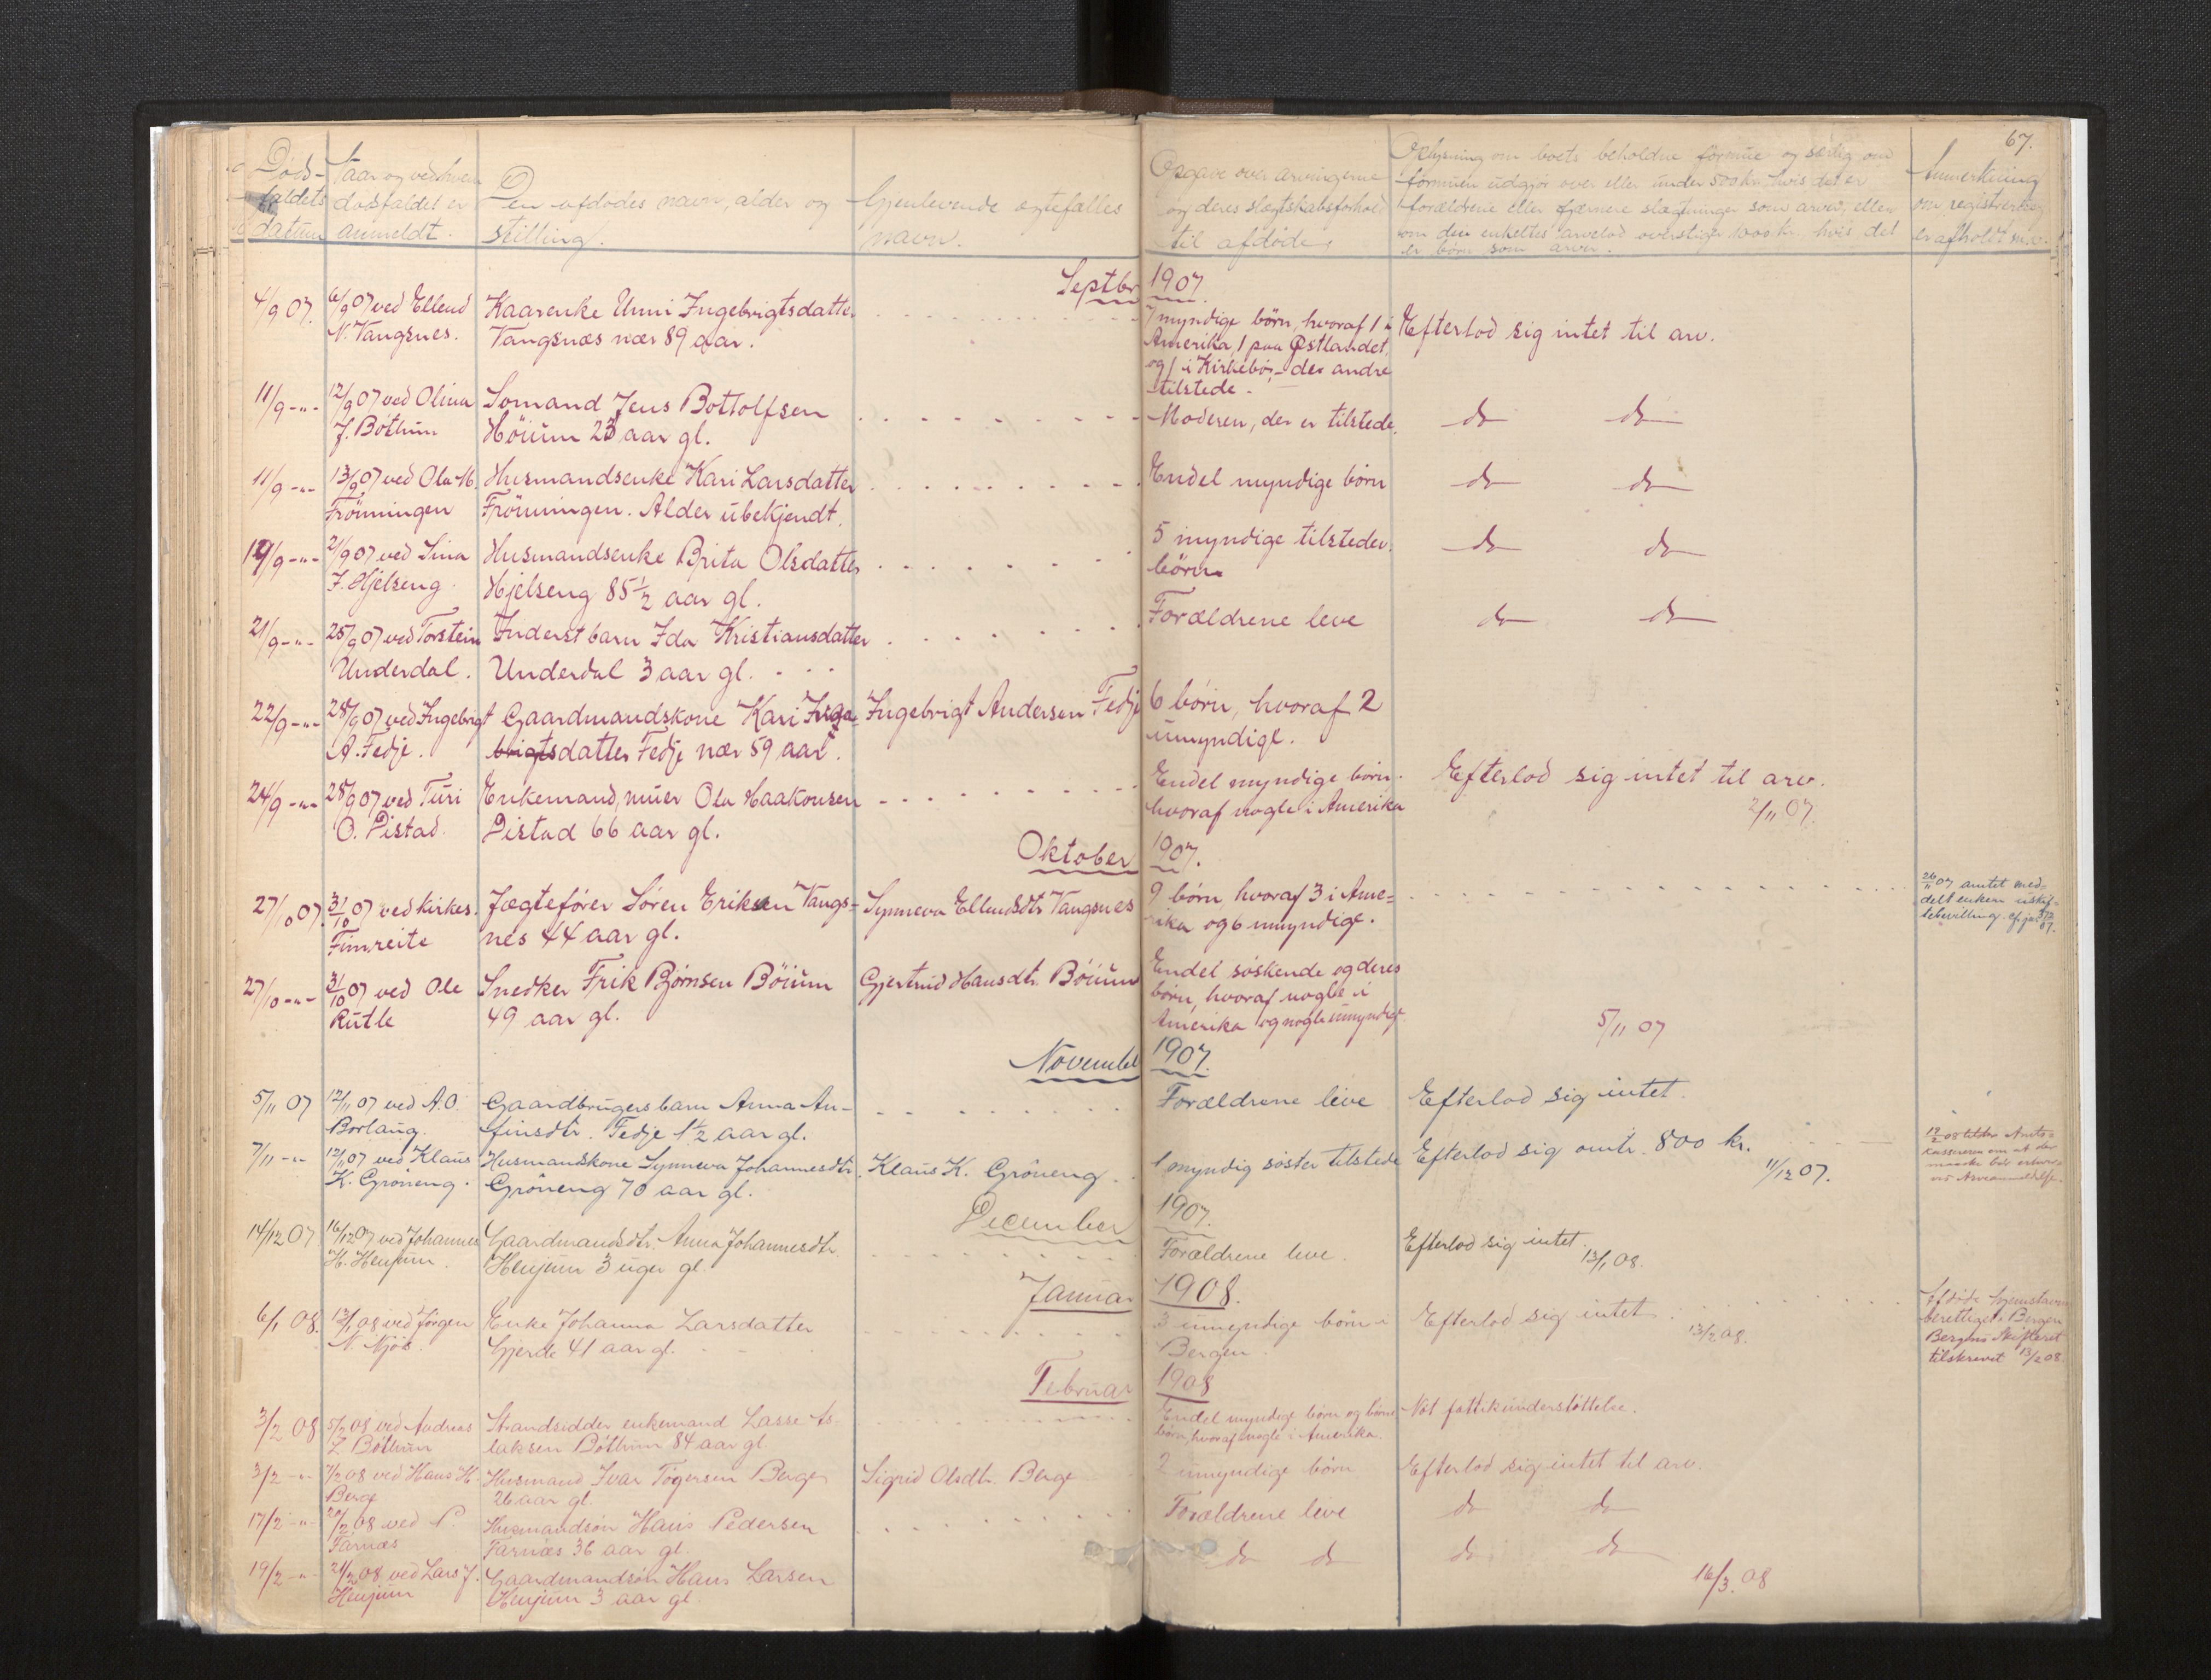 67.
Død-
faldets
datum
Naar og ved hvem
dødsfaldet er
anmeldt.
Den afdødes navn, alder og
stilling.
Gjenlevende ægtefælles
navn.
Opgave over arvingerne
og deres slægtskabsforhold
til afdøde
Oplysning om boets beholdne formue og særlig om
formuen udgjør over eller under 500 kr. hvis det er
forældrene eller fjærnere slægtninger som arver, eller
om den enkeltes arvelod overstiger 1000 kr. hvis det
er børn som arver.
Anmerkning
om registrering
er afholdt m.v.
Septbr 1907.
4/9 07.
6/9 07 ved Ellend
N. Vangsnes.
Kaarenke Unni Ingebrigtsdatter
Vangsnæs nær 89 aar.
7 myndige børn, hvoraf 1 i
Amerika, 1 paa Østlandet,
og 1 i Kirkebø, - de andre
tilstede.
Efterlod sig intet til arv.
11/9 -"-
12/9 07 ved Olina
J. Bøthun
Somand Jens Bottolfsen
Høium 23 aar gl.
Moderen, der er tilstede.
do do
11/9 -"-
13/9 07 ved Ola M.
Frønningen
Husmandsenke Kari Larsdatter
Frønningen. Alder ubekjendt.
Endel myndige børn
do do
19/9 -"-
21/9 07 ved Sina
J. Hjelseng.
Husmandsenke Brita Olsdatter
Hjelseng 85 1/2 aar gl.
5 myndige tilstedev.
børn
do do
21/9 -"-
25/9 07 ved Torstein
Underdal.
Inderst barn Ida Kristiansdatter
Underdal 3 aar gl.
Forældrene leve
do do
22/9 -"-
28/9 07 ved Ingebrigt
A. Fedje.
Gaardmandskone Kari Inge-
brigtsdatter Fedje nær 59 aar.
Ingebrigt Andersen Fedje
6 børn, hvoraf 2
umyndige.
24/9 -"-
28/9 07 ved Turi
O. Pistad.
Enkemand, muer Ola Haakonsen
Pistad 66 aar gl.
Endel myndige børn.
hvoraf nogle i Amerika
Efterlod sig intet til arv.
2/11 07.
Oktober 1907.
27/10 07.
31/10 07 ved kirkes.
Fimreite
Jægtefører Søren Eriksen Vangs-
nes 44 aar gl.
Synneva Ellendsdtr Vangsnes
9 børn, hvoraf 3 i Ame-
rika og 6 umyndige.
26/11 07 amtet med-
delt enken uskif-
tebevilling cfr jr.
27/10 -"-
31/10 07 ved Ole
Rutle
Snedker Erik Bjørnsen Bøium
49 aar gl.
Gjertrud Hansdtr. Bøium
Endel søskende og deres
børn, hvoraf nogle i
Amerika og nogle umyndige
5/11 07
November 1907.
5/11 07
12/11 07 ved A.O.
Borlaug.
Gaardbrugersbarn Anna An-
finsdtr. Fedje 1 1/2 aar gl.
Forældrene leve
Efterlod sig intet.
7/11 -"-
12/11 07 ved Klaus
K. Grøneng.
Husmandskone Synneva Johannesdtr.
Grøneng 70 aar gl.
Klaus K. Grøneng.
1 myndig søster tilstede
Efterlod sig omtr. 800 kr.
11/12 07.
Amts-
kassereren om at der
ved Arveanmeldelse.
December 1907.
14/12 07
16/12 07 ved Johannes
H. Henjum.
Gaardmandsdtr. Anna Johannesdtr.
Henjum 3 uger gl.
Forældrene leve.
Efterlod sig intet.
13/1 08.
Januar 1908.
6/1 08.
13/1 08 ved Jørgen
N. Njøs.
Enke Johanna Larsdatter
Gjerde 41 aar gl.
3 umyndige børn i
Bergen.
Efterlod sig intet.
13/2 08.
Afdøde hjemstavns-
berettiget i Bergen
Bergens Skifteret
tilskrevet 13/2 08.
Februar 1908
3/2 08
5/2 08 ved Andreas
L. Bøthun
Strandsidder enkemand Lasse As-
laksen Bøthun 84 aar gl.
Endel myndige børn og børne-
børn, hvoraf nogle i Amerika.
Nøt fattigunderstøttelse.
3/2 -"-
7/2 08 ved Hans H.
Berge
Husmand Ivar Tøgersen Berge
26 aar gl.
Sigrid Olsdtr. Berge
2 umyndige børn
Efterlod sig intet til arv.
17/2 -"-
20/2 08 ved P.
Farnæs
Husmandsøn Hans Pedersen
Farnæs 36 aar gl.
Forældrene leve
do do
19/2 -"-
21/2 08 ved Lars J.
Henjum
Gaardmandsøn Hans Larsen
Henjum 3 aar gl.
do do
do do
16/3. 08